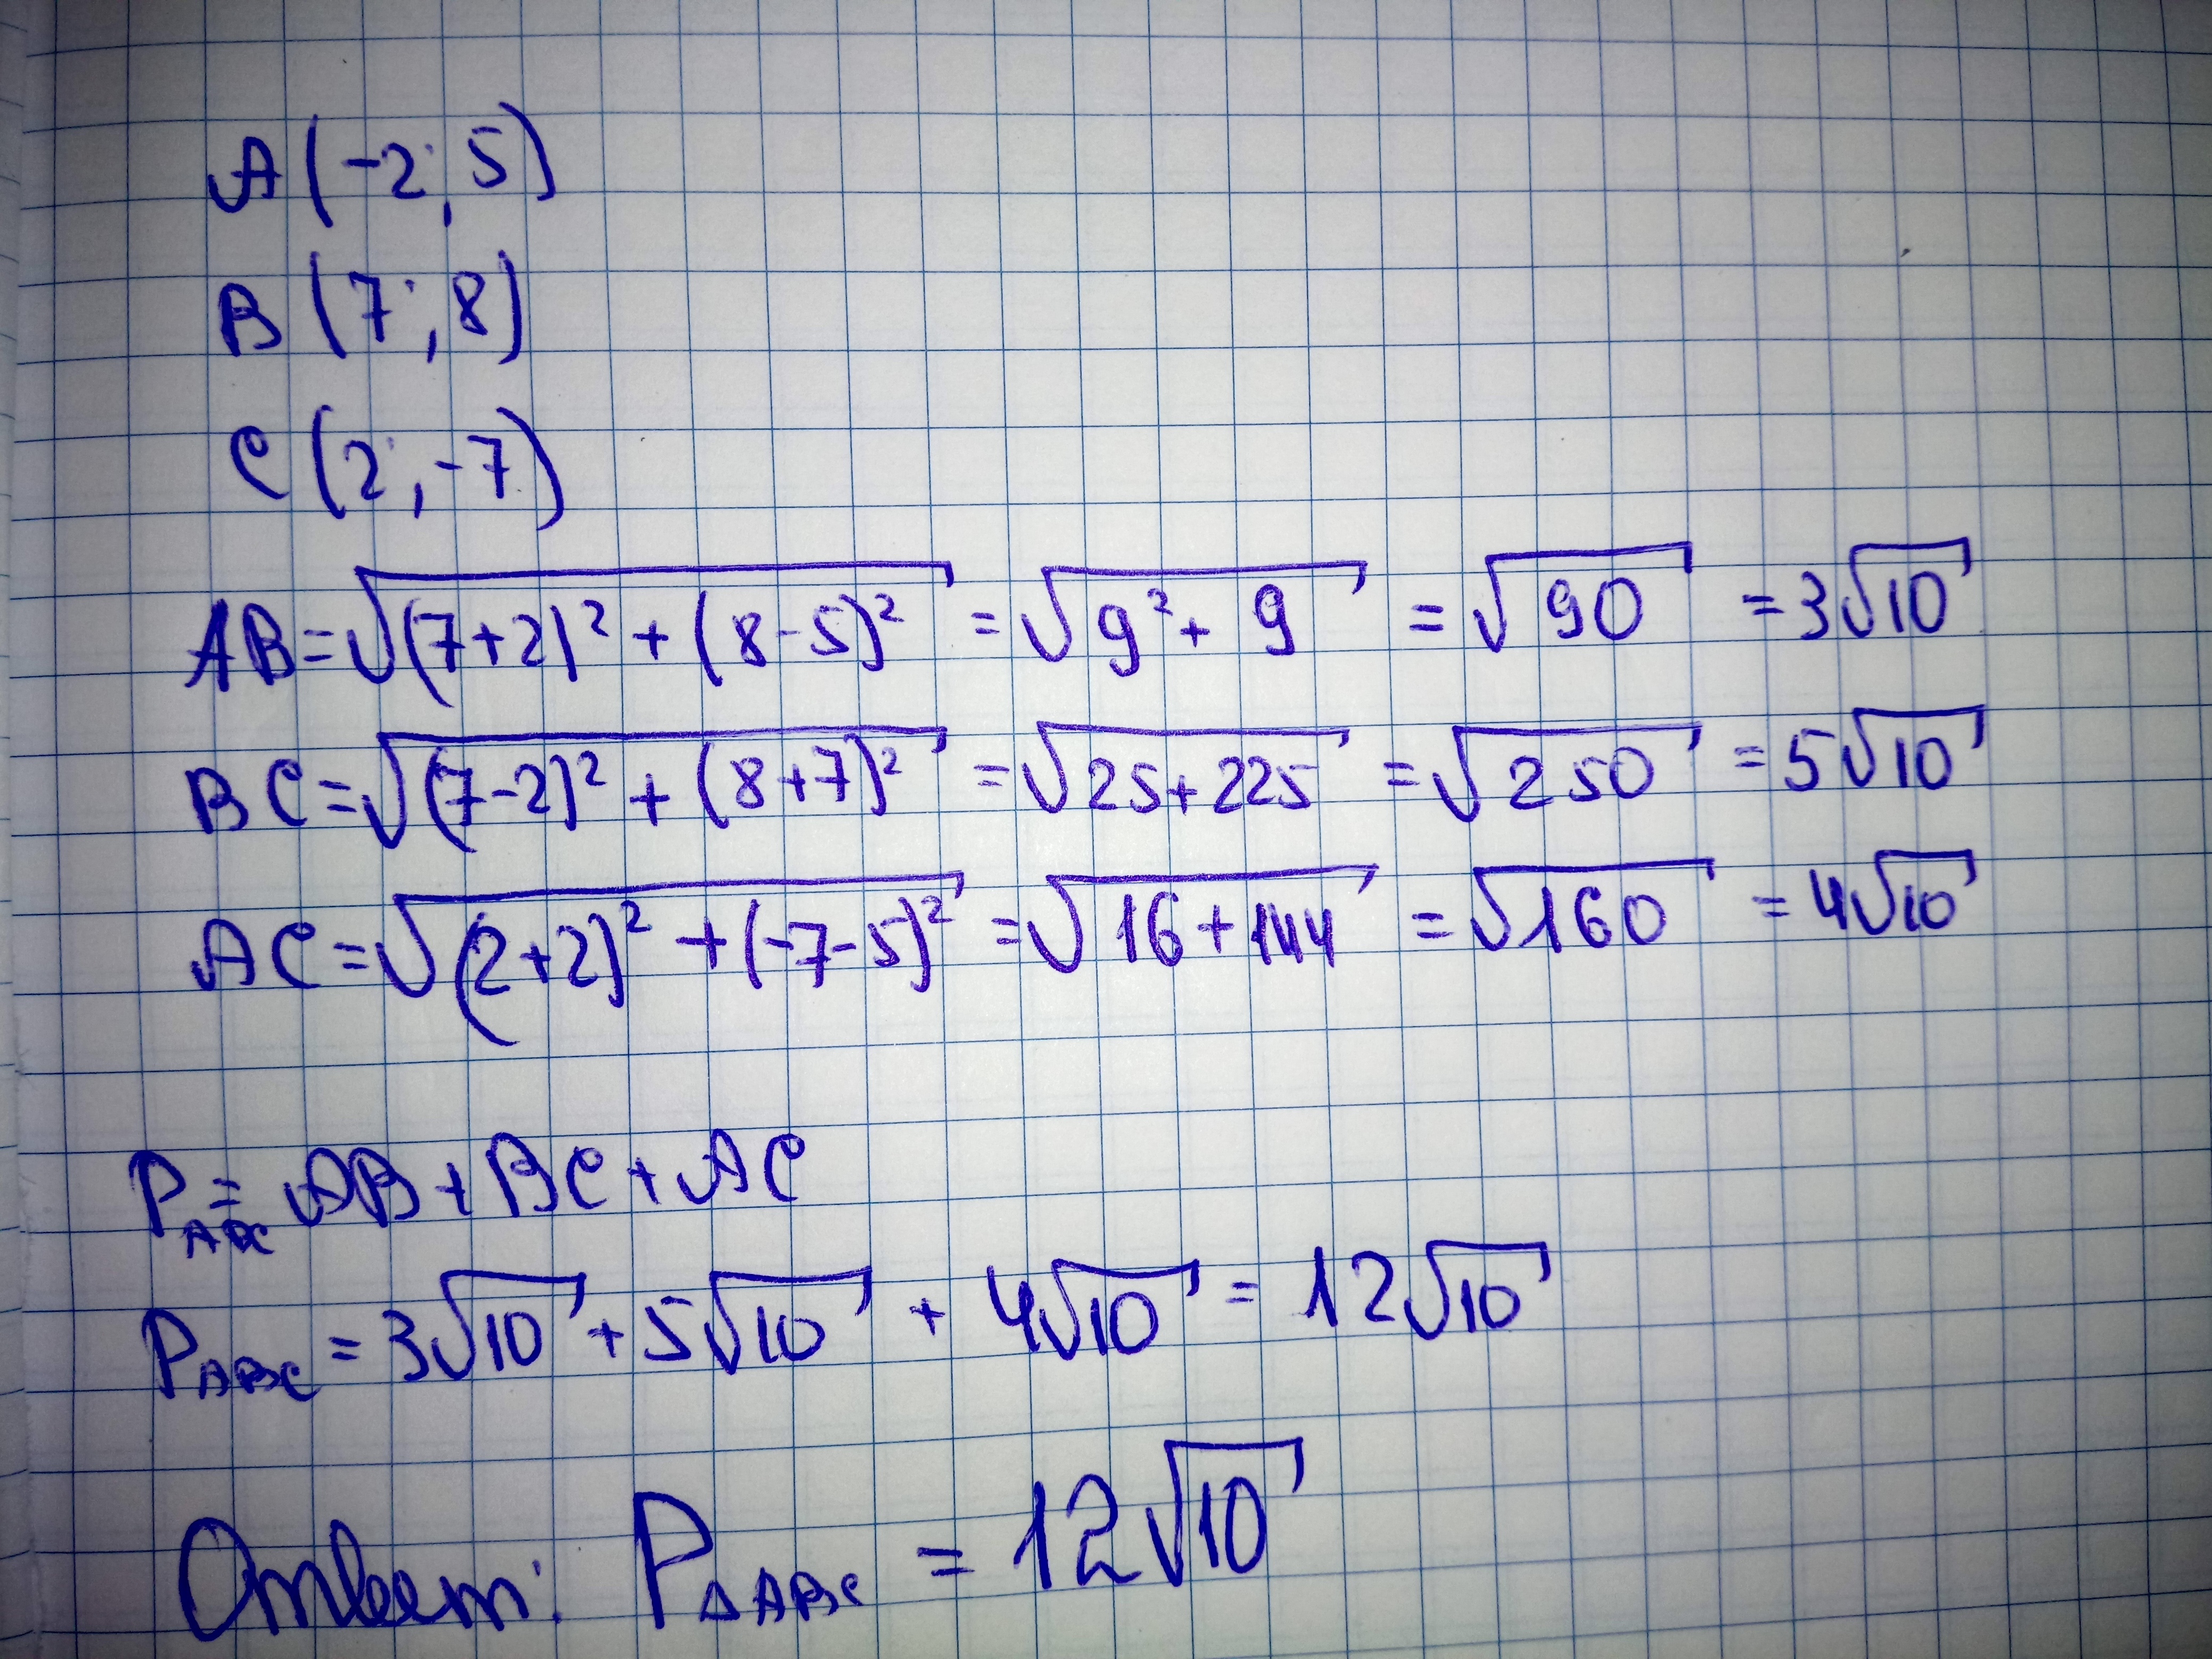 A(-2; 5)
B(7; 8)
C(2; -7)
AB=√(7+2)² + (8-5)² = √9² + 9 = √90 = 3√10
BC=√(7-2)² + (8+7)² = √25+225 = √250 = 5√10
AC=√(2+2)² + (-7-5)² = √16+144 = √160 = 4√10
P_ABC = AB+BC+AC
P_ABC = 3√10 + 5√10 + 4√10 = 12√10
Ответ: P_ΔABC = 12√10